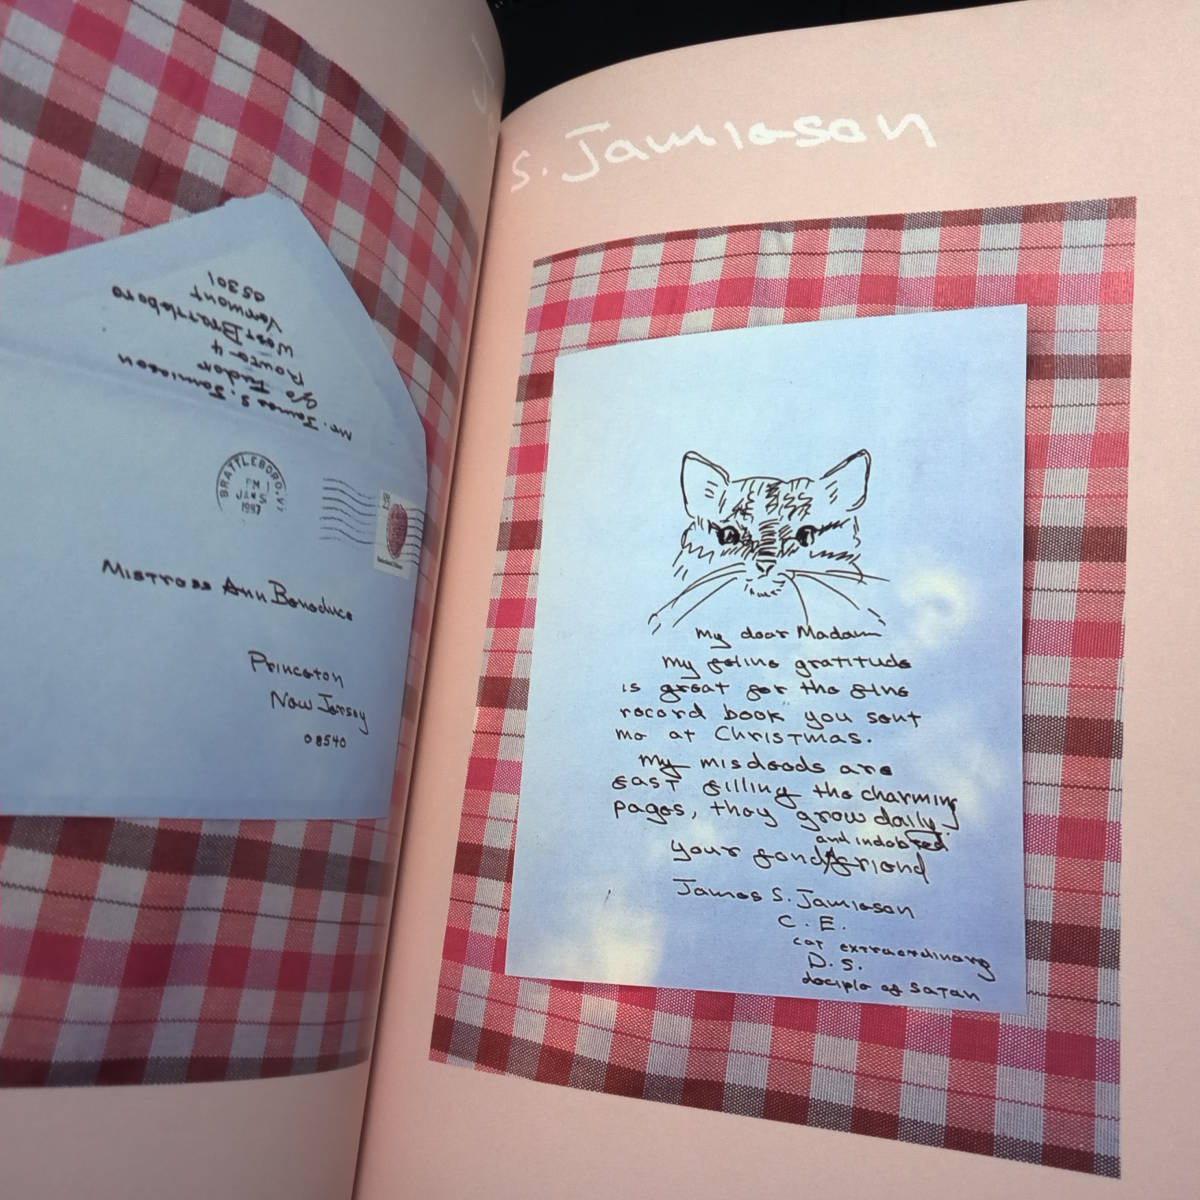 Mr. James S. Jamieson
c/o Tudor
Route 4
West Brattleboro
Vermont
05301
BRATTLEBORO, VT
PM
JAN 5
1987
Mistress Ann Beneduce
Princeton
New Jersey
08540
S. Jamieson
My dear Madam
My feline gratitude
is great for the fine
record book you sent
me at Christmas.
My misdeeds are
fast filling the charming
pages, they grow daily.
and indebted
your fond friend
James S. Jamieson
C. E.
cat extraordinary
D. S.
deciple of Satan